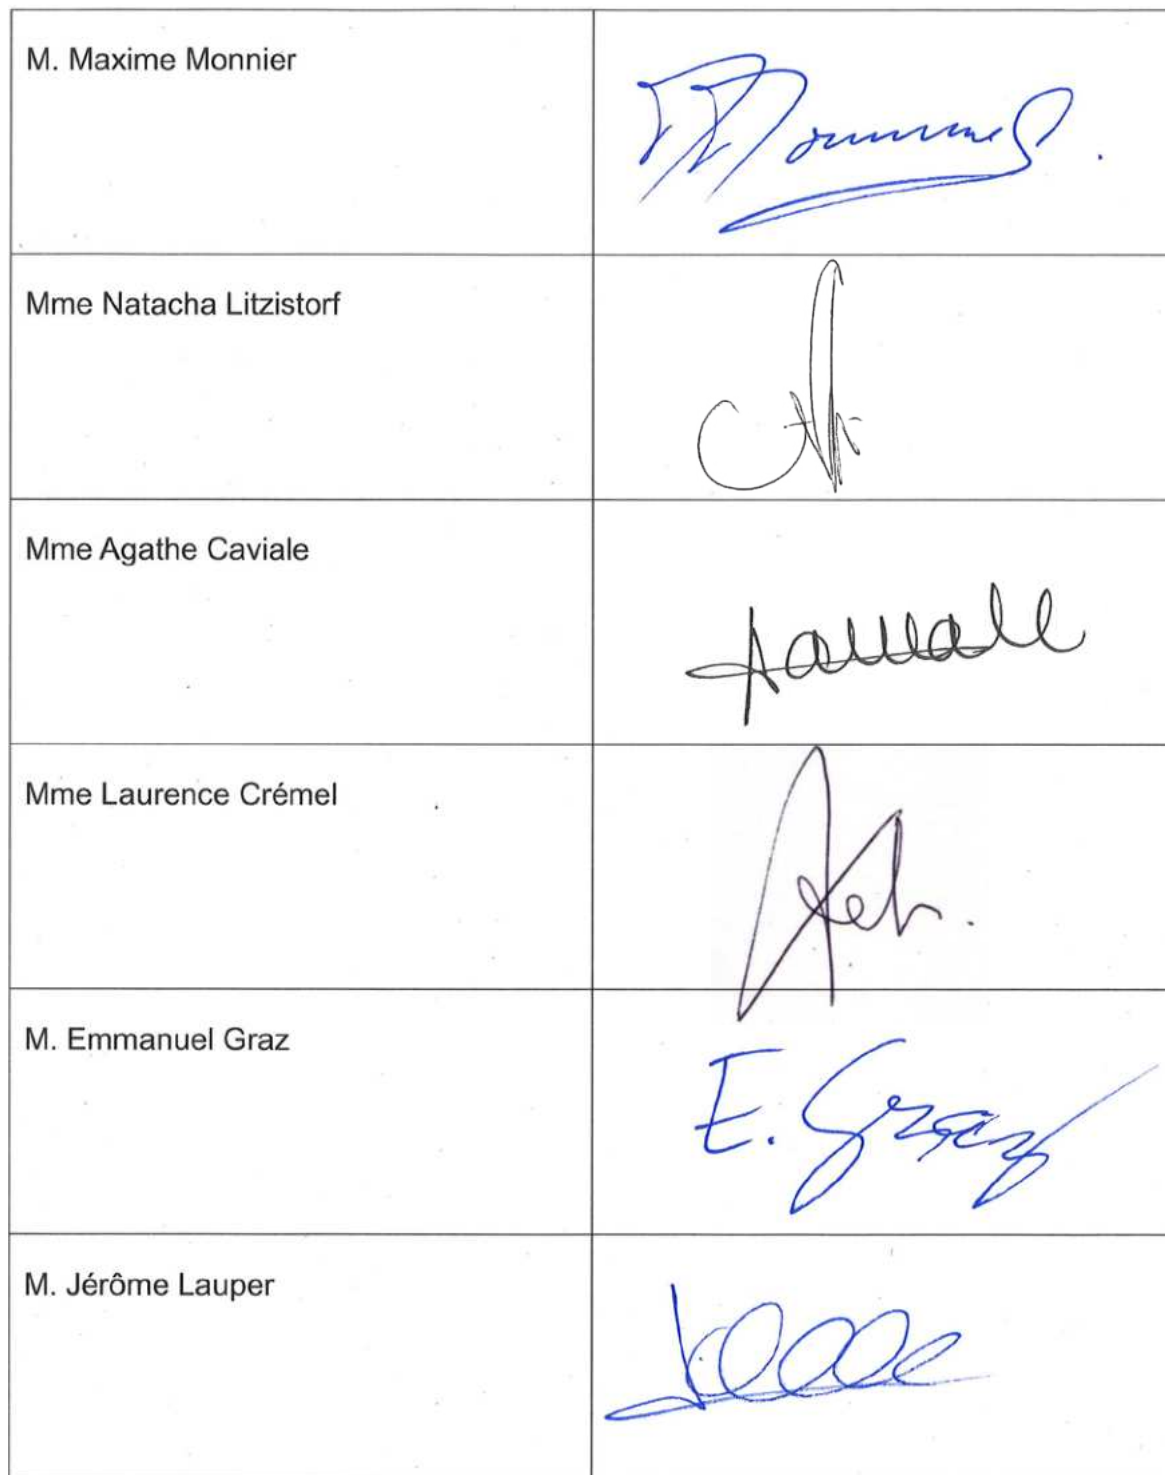 M. Maxime Monnier
Mme Natacha Litzistorf
Mme Agathe Caviale
Mme Laurence Crémel
M. Emmanuel Graz
E. Graz
M. Jérôme Lauper